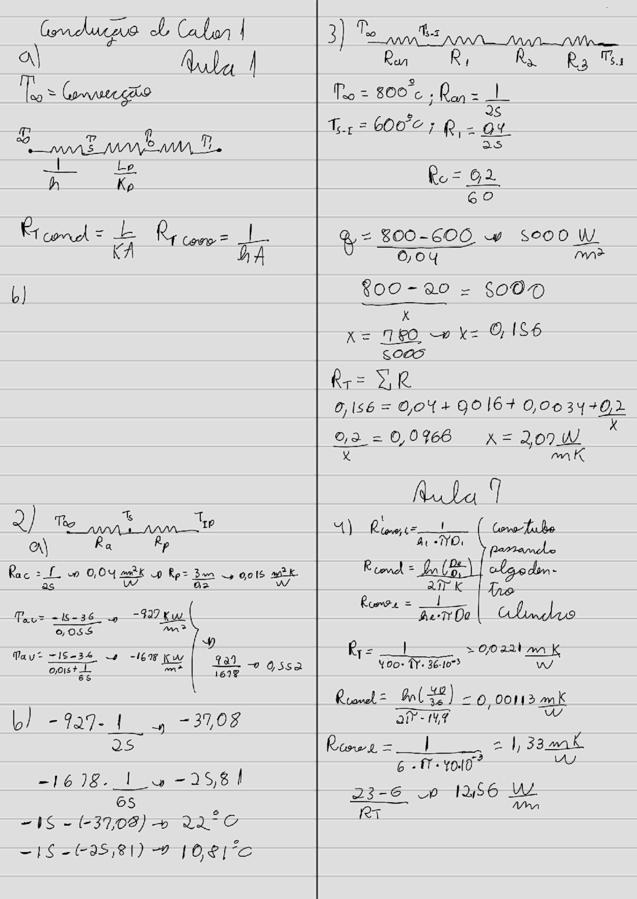 Condução de Calor 1
a) Aula 1
T∞ = Convecção
T∞ Ts To Ti
1/h Lp/Kp
RT cond = L/KA RT conv = 1/hA
b)
2) T∞ Ts TIP
a) Ra Rp
Rac = 1/25 → 0,04 m²K/W → Rp = 3m/0,2 → 0,015 m²K/W
Tac = -15-36/0,055 → -927 KW/m²
Tav = -15-36/0,015+1/65 → -1678 KW/m² → 927/1678 → 0,552
b) -927 · 1/25 → -37,08
-1678 · 1/65 → -25,81
-15 - (-37,08) → 22°C
-15 - (-25,81) → 10,81°C
3) T∞ Ts-I Ts.I
Rar R1 R2 R3
T∞ = 800°C ; Rar = 1/25
Ts-I = 600°C ; R1 = 0,4/25
Rc = 0,2/60
q = 800-600/0,04 → 5000 W/m²
800-20/x = 5000
x = 780/5000 → x = 0,156
RT = ΣR
0,156 = 0,04 + 0,016 + 0,0034 + 0,2/x
0,2/x = 0,0966 x = 2,07 W/mK
Aula 7
4) R'conv,i = 1/hi·πDi
Rcond = ln(De/Di)/2πK
Rconv e = 1/he·πDe
Cano tubo
passando
algo den-
tro
Cilindro
RT = 1/400·π·36·10⁻³ = 0,0221 mK/W
Rcond = ln(40/36)/2π·14,9 = 0,00113 mK/W
Rconv e = 1/6·π·40·10⁻³ = 1,33 mK/W
23-6/RT → 12,56 W/m